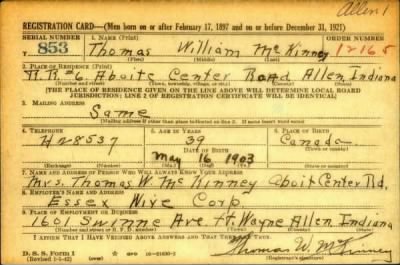 Allen 1
REGISTRATION CARD—(Men born on or after February 17, 1897 and on or before December 31, 1921)
SERIAL NUMBER 1. NAME (Print) ORDER NUMBER
T 853 Thomas William McKinney 12165
2. PLACE OF RESIDENCE (Print)
R.R.#6 Aboite Center Road Allen Indiana
(Town, township, village, or city) (County) (State)
[THE PLACE OF RESIDENCE GIVEN ON THE LINE ABOVE WILL DETERMINE LOCAL BOARD
JURISDICTION; LINE 2 OF REGISTRATION CERTIFICATE WILL BE IDENTICAL]
3. MAILING ADDRESS
Same
[Mailing address if other than place indicated on line 2. If same insert word same]
4. TELEPHONE 5. AGE IN YEARS 6. PLACE OF BIRTH
H28537 39 Canada
DATE OF BIRTH
May 16 1903
(Exchange) (Number) (Mo.) (Day) (Yr.) (State or country)
7. NAME AND ADDRESS OF PERSON WHO WILL ALWAYS KNOW YOUR ADDRESS
Mrs. Thomas W. McKinney Aboit Center Rd.
8. EMPLOYER'S NAME AND ADDRESS
Essex Wire Corp.
9. PLACE OF EMPLOYMENT OR BUSINESS
1601 Swinne Ave. Ft. Wayne Allen Indiana
(Number and street or R. F. D. number) (Town) (County) (State)
I AFFIRM THAT I HAVE VERIFIED ABOVE ANSWERS AND THAT THEY ARE TRUE.
D. S. S. Form 1
(Revised 1-1-42) (over) 16-21630-2
Thomas W. McKinney
(Registrant's signature)